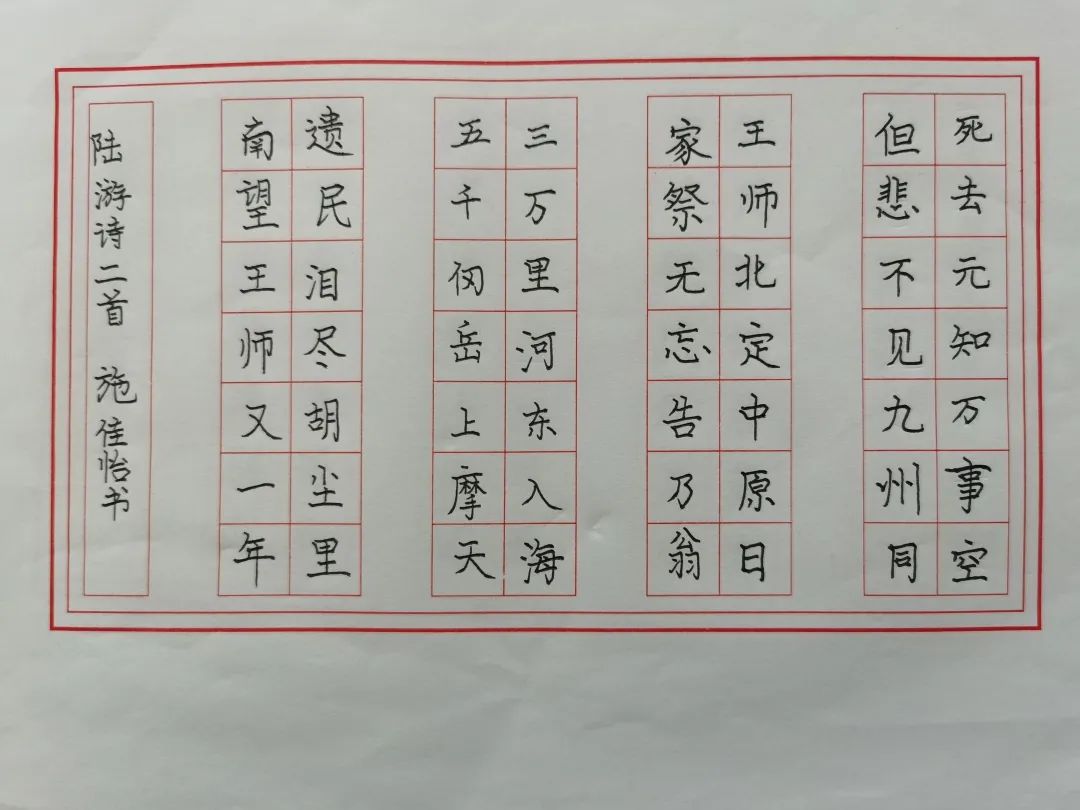 死去元知万事空
但悲不见九州同
王师北定中原日
家祭无忘告乃翁
三万里河东入海
五千仞岳上摩天
遗民泪尽胡尘里
南望王师又一年
陆游诗二首 施佳怡书